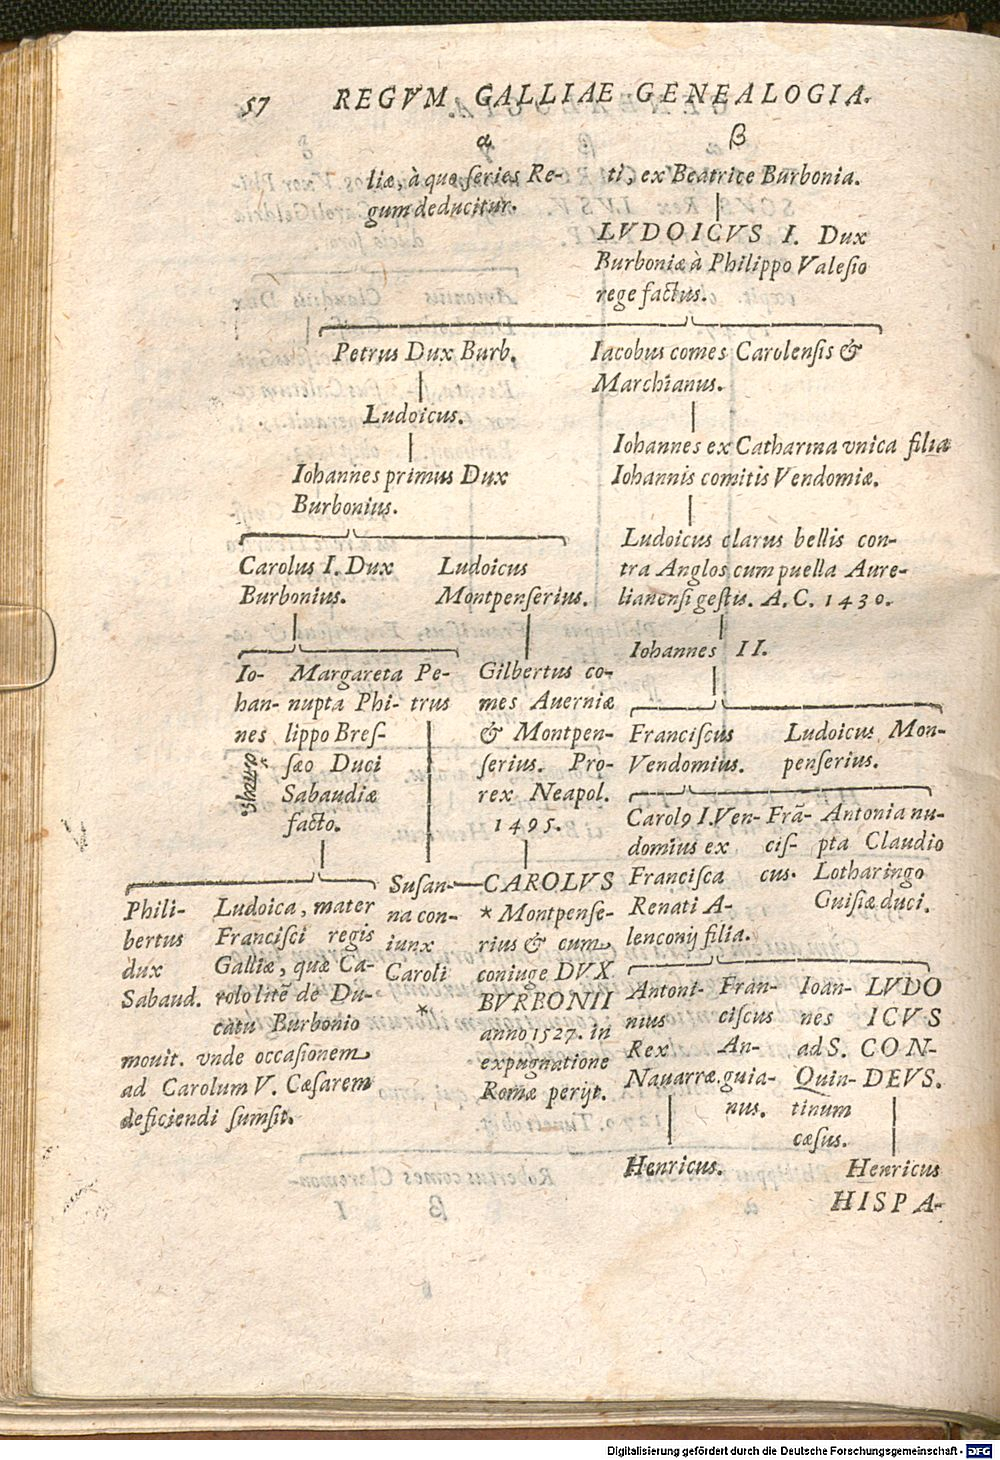 57 REGVM GALLIAE GENEALOGIA.
α
liæ, à quo series Re-
gum deducitur.
β
ti, ex Beatrice Burbonia.
LVDOICVS I. Dux
Burboniæ à Philippo Valesio
rege factus.
Petrus Dux Burb.
Ludoicus.
Iohannes primus Dux
Burbonius.
Iacobus comes Carolensis &
Marchianus.
Iohannes ex Catharina vnica filia
Iohannis comitis Vendomiæ.
Ludoicus clarus bellis con-
tra Anglos cum puella Aure-
lianensi gestis. A. C. 1430.
Iohannes II.
Carolus I. Dux
Burbonius.
Ludoicus
Montpenserius.
Io-
han-
nes
Margareta
nupta Phi-
lippo Bres-
sæo Duci
Sabaudiæ
facto.
Pe-
trus
Gilbertus co-
mes Auerniæ
& Montpen-
serius. Pro-
rex Neapol.
1495.
Franciscus
Vendomius.
Ludoicus Mon-
penserius.
Carol9 I. Ven-
domius ex
Francisca
Renati A-
lenconij filia.
Frã-
cis-
cus.
Antonia nu-
pta Claudio
Lotharingo
Guisiæ duci.
Phili-
bertus
dux
Sabaud.
Ludoica, mater
Francisci regis
Galliæ, quæ Ca-
rolo litẽ de Du-
catu Burbonio
mouit. vnde occasionem
ad Carolum V. Cæsarem
deficiendi sumsit.
Susan-
na con-
iunx
Caroli
*
CAROLVS
* Montpense-
rius & cum
coniuge DVX
BVRBONII
anno 1527. in
expugnatione
Romæ perijt.
Antoni-
nius
Rex
Nauarræ.
Fran-
ciscus
An-
guia-
nus.
Ioan-
nes
ad S.
Quin-
tinum
cæsus.
LVDO
ICVS
CON-
DEVS.
Henricus.
Henricus
HISPA-
Digitalisierung gefördert durch die Deutsche Forschungsgemeinschaft - DFG